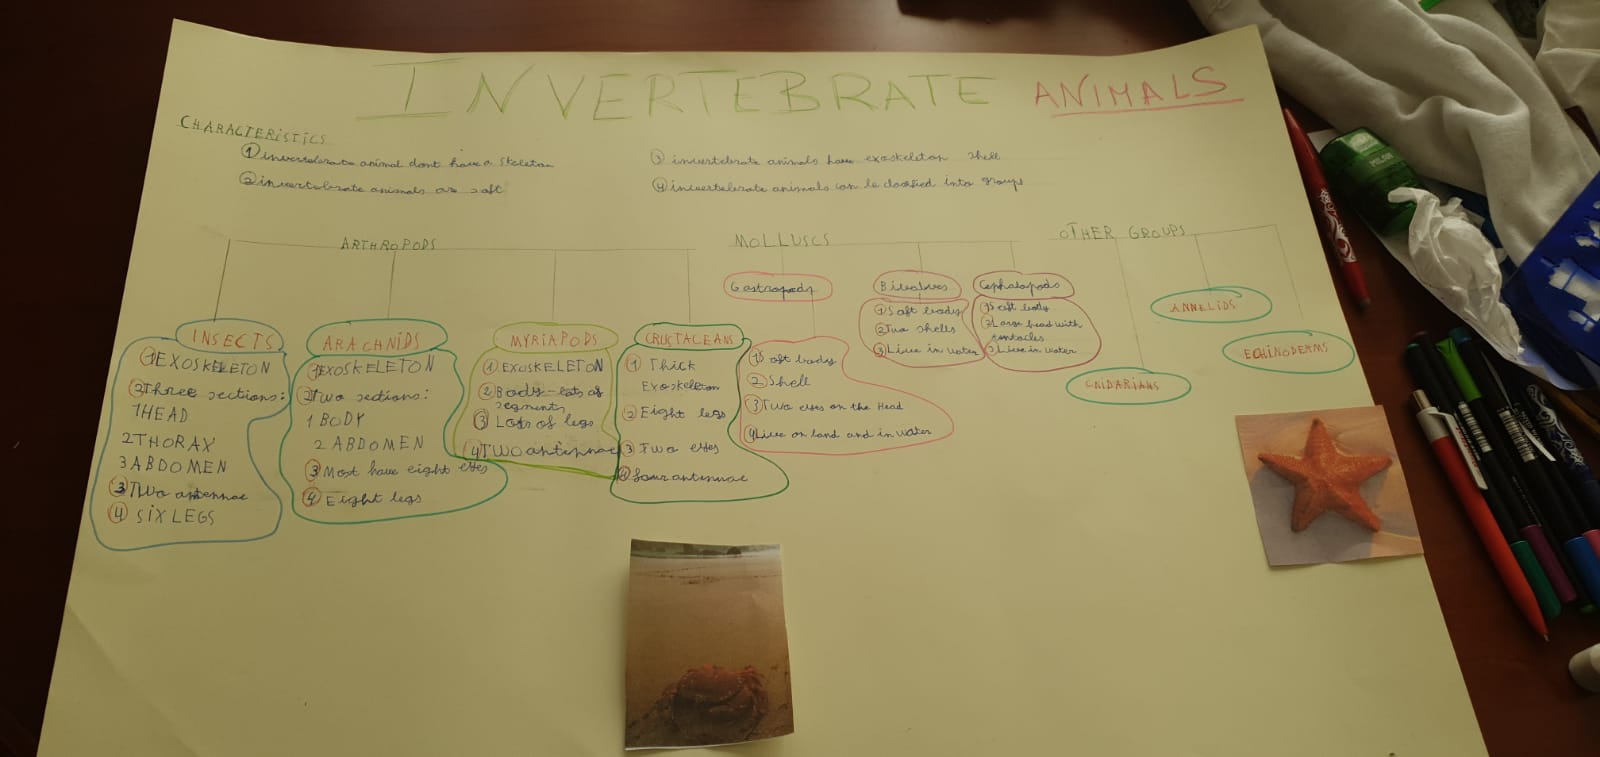 INVERTEBRATE ANIMALS
CHARACTERISTICS
① invertebrate animal dont have a skeleton
② invertebrate animals are soft
③ invertebrate animals have exoskeleton shell
④ invertebrate animals can be clasified into groups
ARTHROPODS
INSECTS
① EXOSKELETON
② Three sections:
1 HEAD
2 THORAX
3 ABDOMEN
③ Two antennae
④ SIX LEGS
ARACHNIDS
① EXOSKELETON
② Two sections:
1 BODY
2 ABDOMEN
③ Most have eight eyes
④ Eight legs
MYRIAPODS
① EXOSKELETON
② Body-lots of
segments
③ Lots of legs
④ TWO antinnae
CRUSTACEANS
① Thick
Exoskeleton
② Eight legs
③ Two eyes
④ four antinnae
MOLLUSCS
Gastropods
① Soft body
② Shell
③ Two eyes on the Head
④ Live on land and in water
Bivalves
① Soft body
② Two shells
③ Live in water
Cephalopods
① Soft body
② Large head with
tentacles
③ Live in water
OTHER GROUPS
CNIDARIANS
ANNELIDS
ECHINODERMS